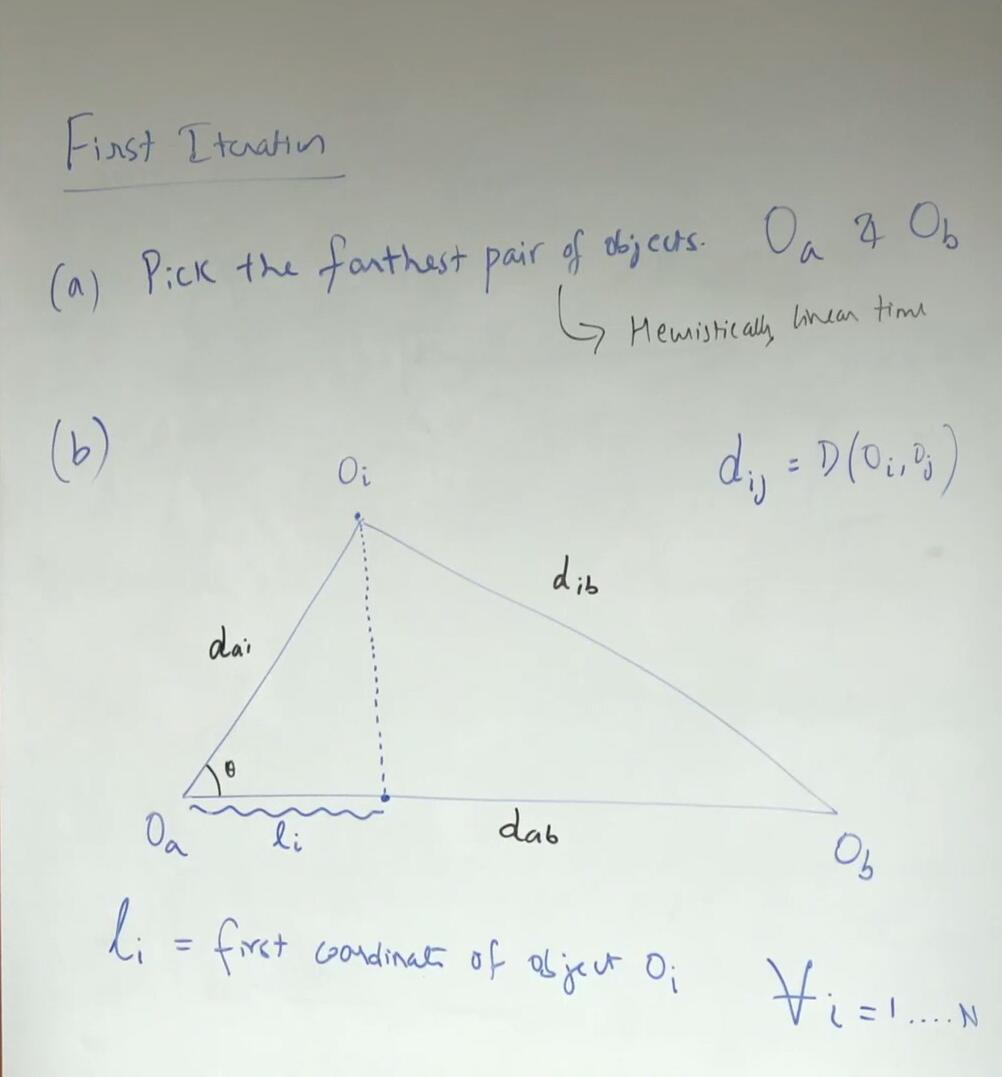 First Iteration
(a) Pick the farthest pair of objects. Oa & Ob
↳ Heuristically, linear time
(b)
dij = D(Oi, Oj)
Oi
dib
dai
θ
Oa
li
dab
Ob
li = first coordinate of object Oi ∀i = 1 .... N